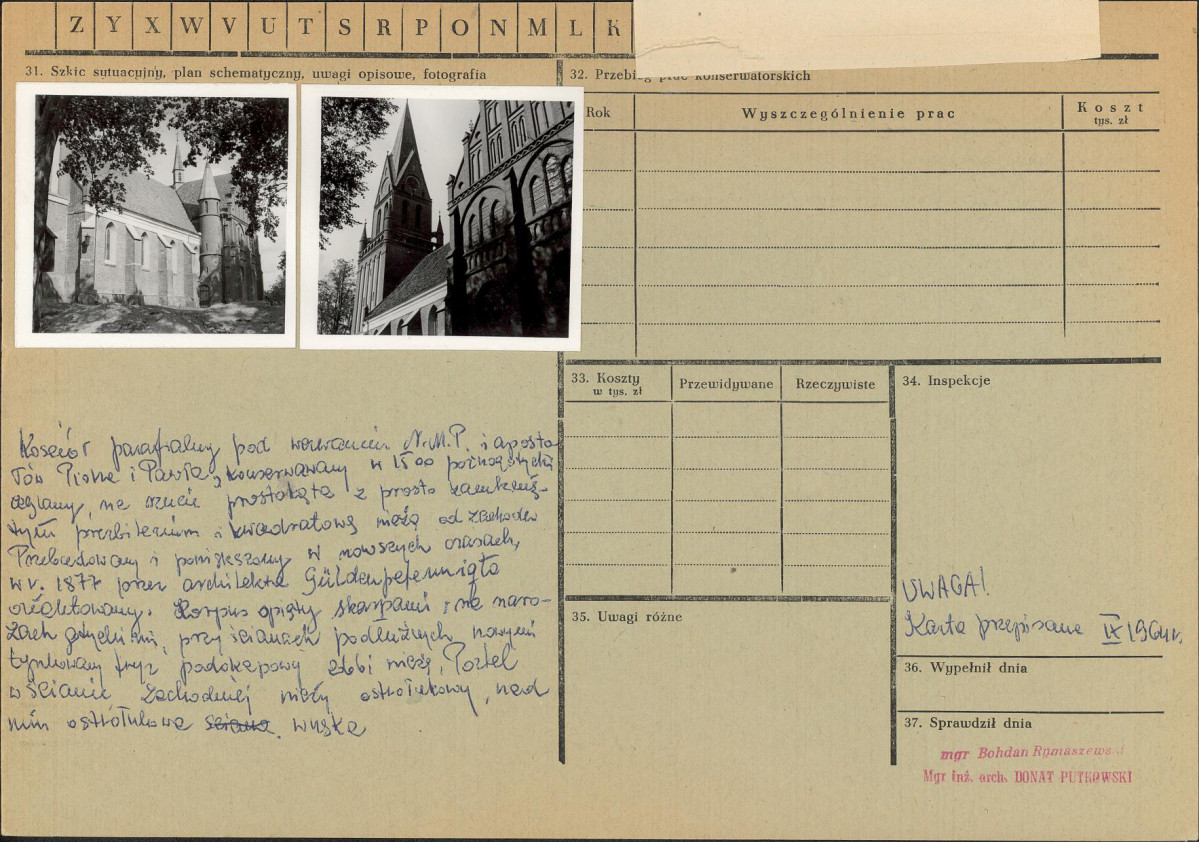 Z Y X W V U T S R P O N M L K
31. Szkic sytuacyjny, plan schematyczny, uwagi opisowe, fotografia
Kościół parafialny pod wezwaniem N.M.P. i aposto-
łów Piotra i Pawła, konserwowany w 1500 późnogotycki
ceglany, na rzucie prostokąta z prosto zamknię-
tym prezbiterium i kwadratową wieżą od zachodu
Przebudowany i powiększony w nowszych czasach,
w r. 1877 przez architekta Güldenpfenniga
Korpus opięty skarpami i na naro-
żach przy ścianach podłużnych nowymi
tynkowany fryz podokapowy zdobi wieżę, Portal
w ścianie zachodniej wieży ostrołukowy, nad
nim ostrołukowa wnęka
32. Przebieg prac konserwatorskich
Rok
Wyszczególnienie prac
Koszt
tys. zł
33. Koszty
w tys. zł
Przewidywane
Rzeczywiste
34. Inspekcje
UWAGA!
Karta przepisana IX 1964 r.
35. Uwagi różne
36. Wypełnił dnia
37. Sprawdził dnia
mgr Bohdan Rymaszewski
Mgr inż. arch. DONAT PUTKOWSKI